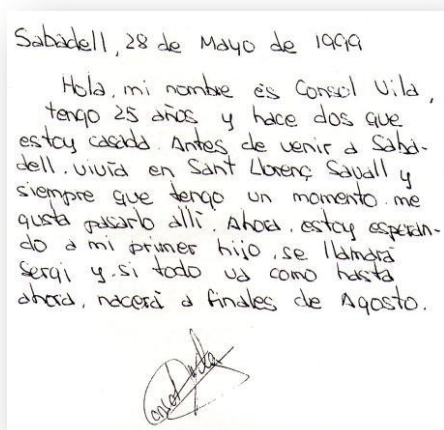 Sabadell, 28 de Mayo de 1999
Hola, mi nombre es Consol Vila,
tengo 25 años y hace dos que
estoy casada. Antes de venir a Saba-
dell, vivía en Sant Llorenç Savall y
siempre que tengo un momento me
gusta pasarlo allí. Ahora, estoy esperan-
do a mi primer hijo, se llamará
Sergi y si todo va como hasta
ahora, nacerá a finales de Agosto.
Consol